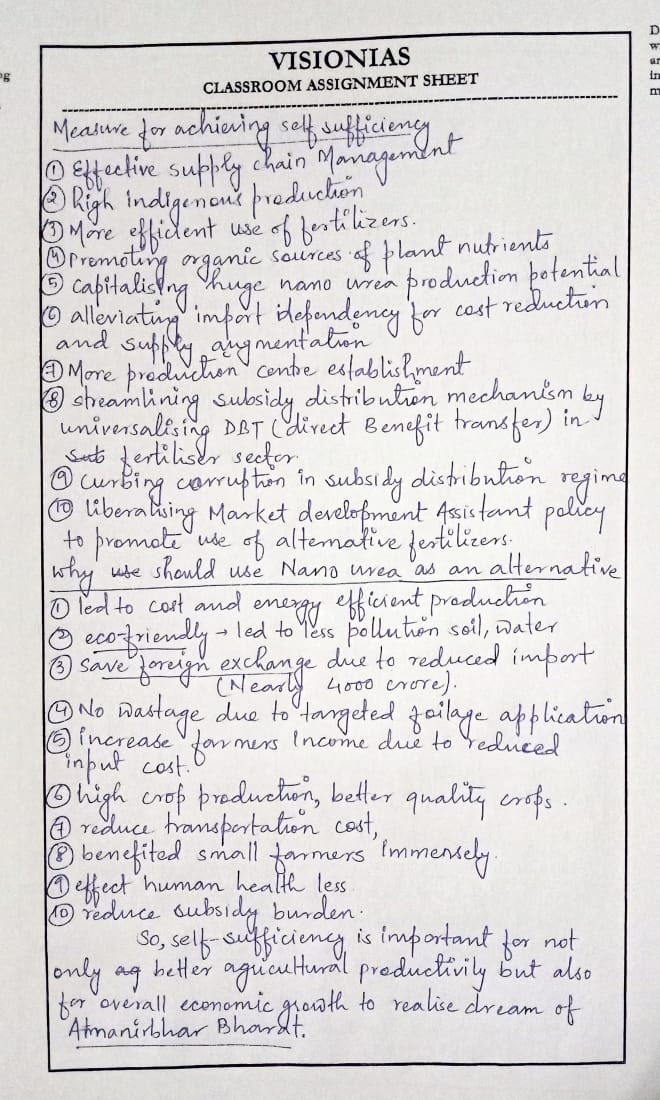 VISIONIAS
CLASSROOM ASSIGNMENT SHEET
Measure for achieving self sufficiency
① Effective supply chain Management
② High indigenous production
③ More efficient use of fertilizers.
④ Promoting organic sources of plant nutrients
⑤ capitalising huge nano urea production potential
⑥ alleviating import dependency for cost reduction
and supply augmentation
⑦ More production centre establishment
⑧ streamlining subsidy distribution mechanism by
universalising DBT (direct Benefit transfer) in
fertiliser sector.
⑨ curbing corruption in subsidy distribution regime
⑩ liberalising Market development Assistant policy
to promote use of alternative fertilizers.
why use should use Nano urea as an alternative
① led to cost and energy efficient production
② eco-friendly → led to less pollution soil, water
③ save foreign exchange due to reduced import
(Nearly 4000 crore).
④ No wastage due to targeted foilage application
⑤ increase farmers Income due to reduced
input cost.
⑥ high crop production, better quality crops.
⑦ reduce transportation cost,
⑧ benefited small farmers immensely.
⑨ effect human health less
⑩ reduce subsidy burden.
So, self-sufficiency is important for not
only ag better agricultural productivily but also
for overall economic growth to realise dream of
Atmanirbhar Bharat.
D
w
ar
in
m
ng